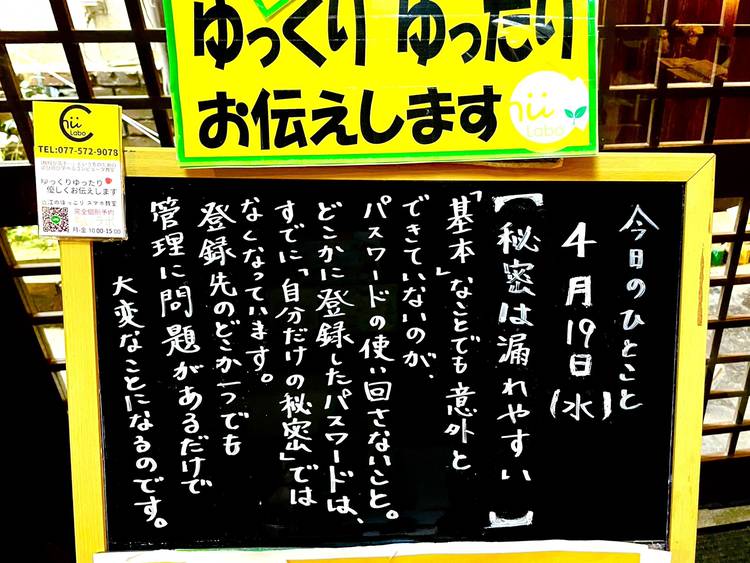 ゆっくり ゆったり
お伝えします
Chii
Labo
Chii
Labo
TEL:077-572-9078
ゆっくりゆったり
優しくお伝えします
近江のほっこりスマホ教室
完全個別予約
月-金 10:00-15:00
今日のひとこと
4月19日(水)
【秘密は漏れやすい】
「基本」なことでも意外と
できていないのが、
パスワードの使い回さないこと。
どこかに登録したパスワードは、
すでに「自分だけの秘密」では
なくなっています。
登録先のどこか一つでも
管理に問題があるだけで
大変なことになるのです。